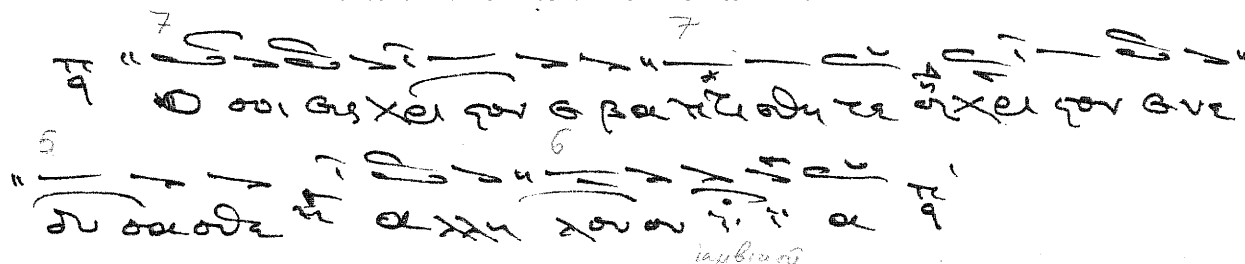 7 7
Ο σοι εις Χρι ϛον ε βα πτι σθη τε Χρι ϛον ε νε
5 6
δυ σα σθε αλ λη λου ου ι ι α